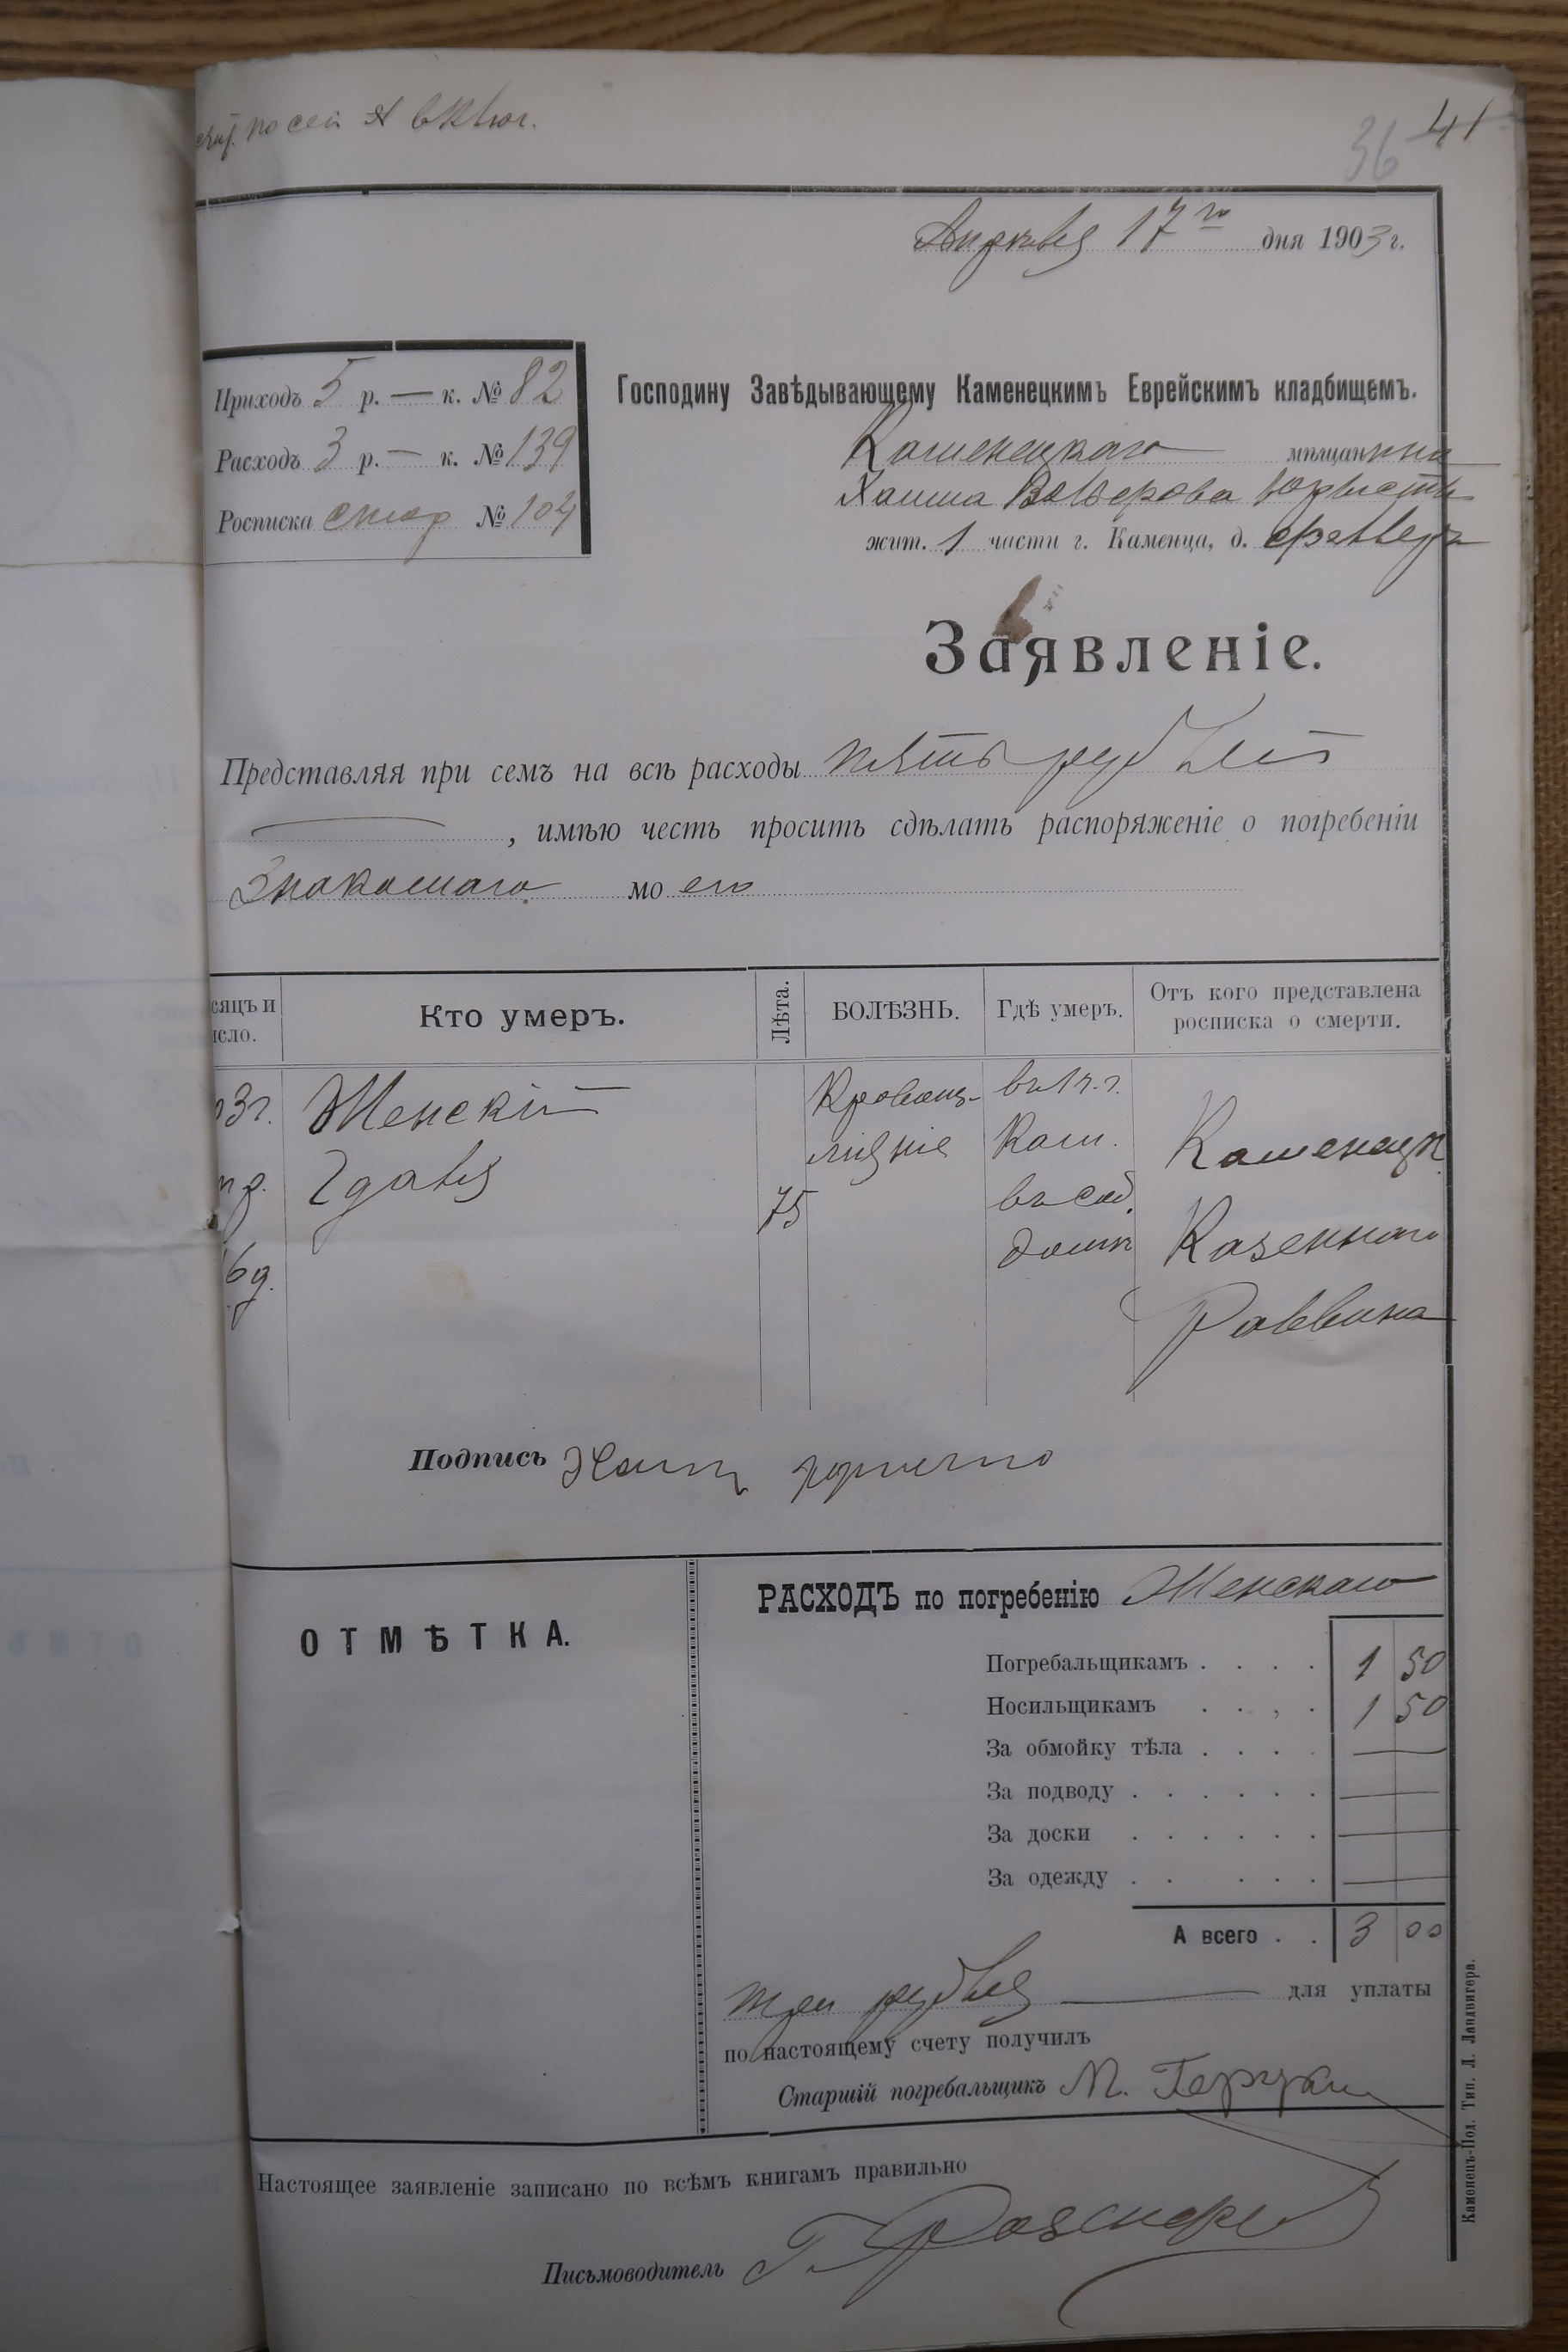 по сей А включ.
36 41
Апрѣля 17го дня 1903 г.
Приходъ 5 р. — к. № 82
Расходъ 3 р. — к. № 139
Росписка № 104
Господину Завѣдывающему Каменецкимъ Еврейскимъ кладбищемъ.
Каменецкаго мѣщанина
Хаима
жит. 1 части г. Каменца, д.
Заявленіе.
Представляя при семъ на всѣ расходы пять рублей
, имѣю честь просить сдѣлать распоряженіе о погребеніи
Знакомаго моего
сяцъ и
исло.
Кто умеръ.
Лѣта.
БОЛѢЗНЬ.
Гдѣ умеръ.
Отъ кого представлена
росписка о смерти.
03 г.
пр.
16 д.
Женскій
Гдаля
75
Кровоиз-
ліяніе
въ 1 ч. г.
Кам.
въ соб.
домѣ
Каменецк.
Казеннаго
Раввина
Подпись Хаим
ОТМѢТКА.
РАСХОДЪ по погребенію Женскаго
Погребальщикамъ . . . . 1 50
Носильщикамъ . . , . 1 50
За обмойку тѣла . . . . —
За подводу . . . . . . —
За доски . . . . . . —
За одежду . . . . . . —
А всего . . 3 00
три рубля — для уплаты
по настоящему счету получилъ
Старшій погребальщикъ М.
Настоящее заявленіе записано по всѣмъ книгамъ правильно
Письмоводитель Г.
Каменецъ-Под. Тип. Л. Ландвигера.